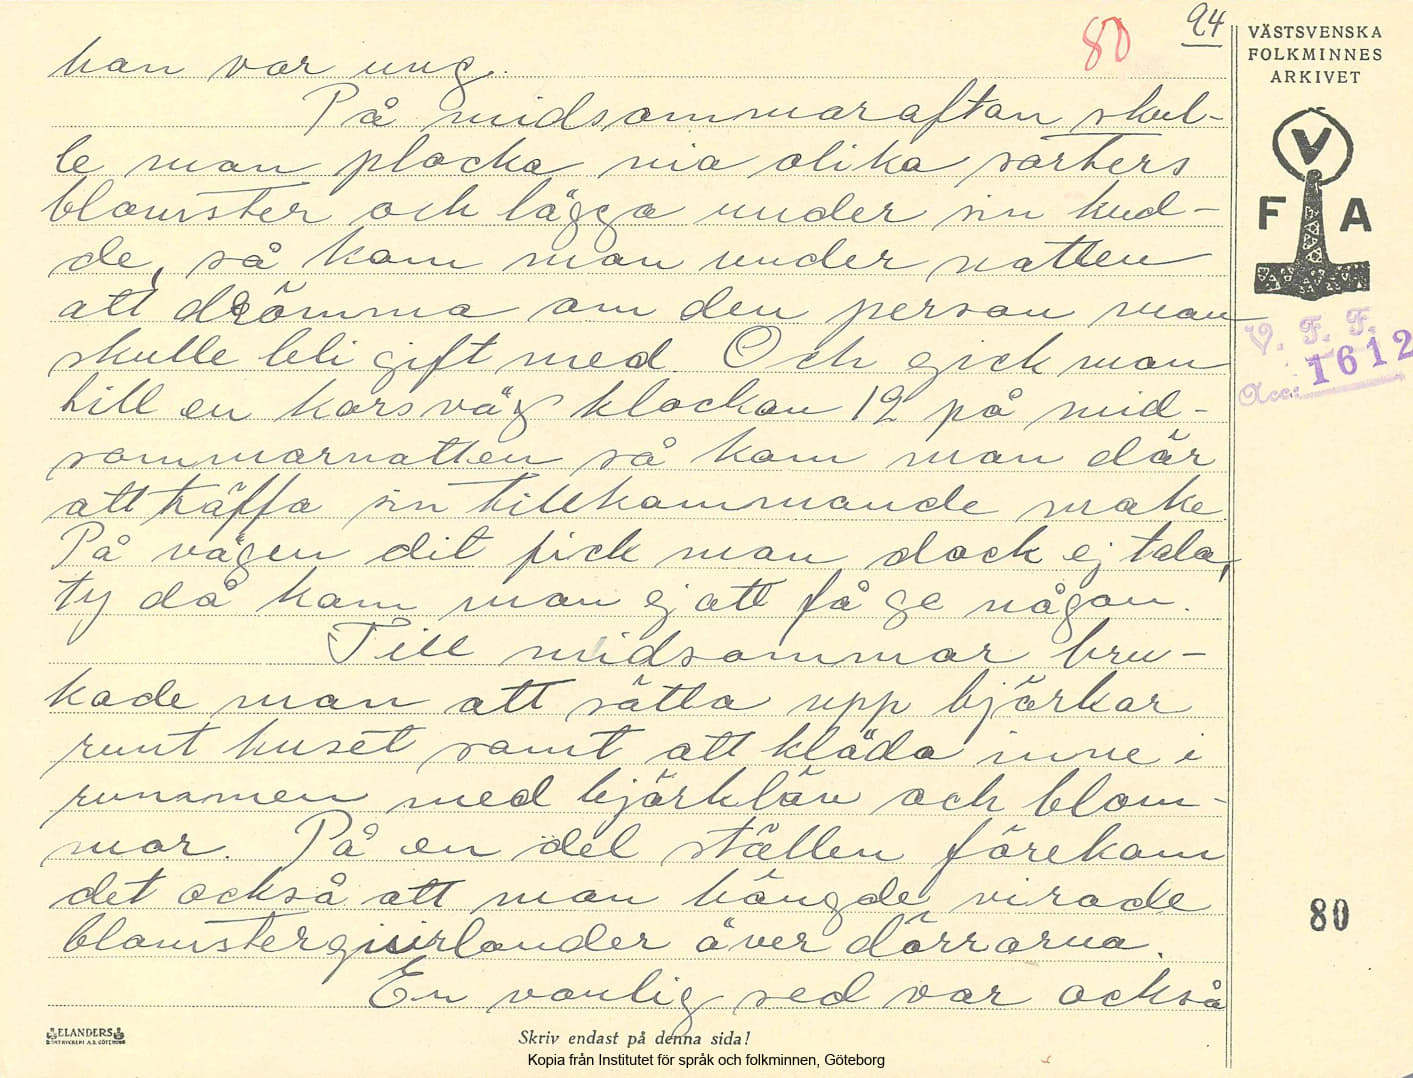 80
94
VÄSTSVENSKA
FOLKMINNES
ARKIVET
V
F A
V. F. F.
Acc: 1612
han var ung.
På midsommaraftan skul-
le man plocka nio olika sorters
blomster och lägga under sin kud-
de, så kom man under natten
att drömma om den person man
skulle bli gift med. Och gick man
till en korsväg klockan 12 på mid-
sommarnatten så kom man där
att träffa sin tillkommande make.
På vägen dit fick man dock ej tala,
ty då kom man ej att få se någon.
Till midsommar bru-
kade man att sätta upp björkar
runt huset samt att kläda inne i
rummen med björklöv och blom-
mor. På en del ställen förekom
det också att man hängde virade
blomstergirlander över dörrarna.
En vanlig sed var också
80
ELANDERS
BOKTRYCKERI A.B. GÖTEBORG
Skriv endast på denna sida!
Kopia från Institutet för språk och folkminnen, Göteborg